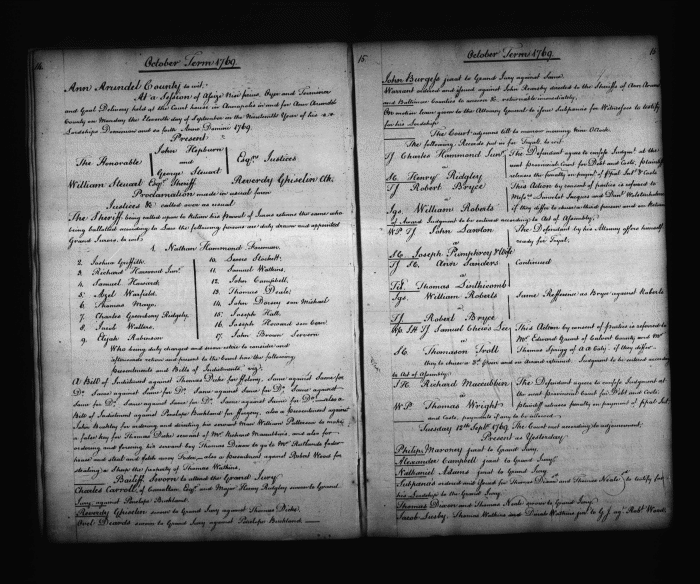 October Term 1769
Ann Arundel County to wit.
At a Session of Assize Nisi prius, Oyer and Terminer
and Goal Delivery held at the Court house in Annapolis in and for Ann Arundel
County on Monday the Eleventh day of September in the Nineteenth Year of his
Lordships Dominion and so forth Anno Domini 1769.
Present
The Honorable John Hepburn and George Steuart Esqrs. Justices
William Steuart Esqr. Sheriff Reverdy Ghiselin Clk.
Proclamation made as usual for
Justices &c. called over as usual
The Sheriff being called upon to Return his Pannel of Jurors returns the same who
being balloted according to Law the following persons are duly drawn and appointed
Grand Jurors, to wit,
1. Nathan Hammond Foreman
2. Joshua Griffith
3. Richard Harwood Junr.
4. Samuel Howard
5. Azel Warfield
6. Thomas Mayo
7. Charles Greenbury Ridgely
8. Wallace
9. Elijah Robinson
10. Stockett
11. Samuel Watkins
12. John Campbell
13. Thomas Deale
14. John Dorsey son Michael
15. Joseph Hall
16. Joseph Howard son
17. John Brown Severn
Who being duly charged and sworn retire to consider and
afterwards return and present to the Court here the following
Presentments and Bills of Indictments, viz.
A Bill of Indictment against Thomas Dicke for ffelony, Same against Same for
Do. Same against Same for Do. Same against Same for Do. Same against
Bill of Indictment against Penelope Buckland for also a Presentment against
John Buckley for ordering and directing his servant Man William Patterson to make
a false key for Thomas Dicke servant of Mr. Richard and also for
ordering and forcing his servant boy Thomas Dixon to go to Mr.
stealing a Sheep the property of Thomas Watkins.
Bailiff Sworn to attend the Grand Jury
Charles Carroll, of Carrollton Esqr. and Major Henry Ridgely sworn to Grand
Jury against Penelope Buckland.
Reverdy Ghiselin sworn to Grand Jury against Thomas Dicke.
Deards sworn to Grand Jury against Penelope Buckland
15
October Term 1769
15
John Burgess sworn to Grand Jury against Same
Warrant ordered and issued against John directed to the Sheriffs of Ann Arundel
and Baltimore Counties to answer &c. returnable immediately.
On motion leave given to the Attorney General to issue Subpoenas for Witnesses to testify
for his Lordship
The Court adjourns till to morrow morning nine OClock.
The following Records put in for Tryal to wit
TJ Charles Hammond Junr. The Defendant agrees to confess Judgmt. at the
next provincial Court for Debt and Costs, plaintiff
St. Henry Ridgley releases the penalty on payment of
TJ Robert Bryce This Action by consent of parties is referred to
vs
William Roberts if they differ to chuse a third person and on Return
of Award Judgment to be entered according to Act of Assembly.
John Lawton The Defendant by his Attorney offers himself
vs ready for Tryal.
Joseph Pumphrey & Wife
Ann Sanders Continued
vs
Thomas Linthicomb
William Roberts Same Reference as Bryce against Roberts
vs
TJ Robert Bryce
Samuel Chew's Lee This Action by consent of parties is referred to
vs Mr. Edward Gantt of Calvert County and Mr.
Thomason Froll Thomas Sprigg of A A Coty. if they differ
they to chuse a 3d. person and on Award returned Judgment to be entered according
to Act of Assembly.
Richard Maccubbin The Defendant agrees to confess Judgment at
vs the next provincial Court for Debt and Costs.
WP Thomas Wright plaintiff releases penalty on payment of
and Costs, payments if any to be allowed.
Tuesday 12th Septr. 1769. The Court met according to adjournment.
Present as Yesterday
Philip Maroney sworn to Grand Jury
Alexander Campbell sworn to Grand Jury
Nathaniel Adams sworn to Grand Jury
Subpoenas ordered and issued for Thomas Dixon and Thomas Neale to testify for
his Lordship to the Grand Jury.
Thomas Dixon and Thomas Neale sworn to Grand Jury.
Jacob Lusby, Thomas Watkins and Dinah Watkins sworn to G J agt. Robt. Wood